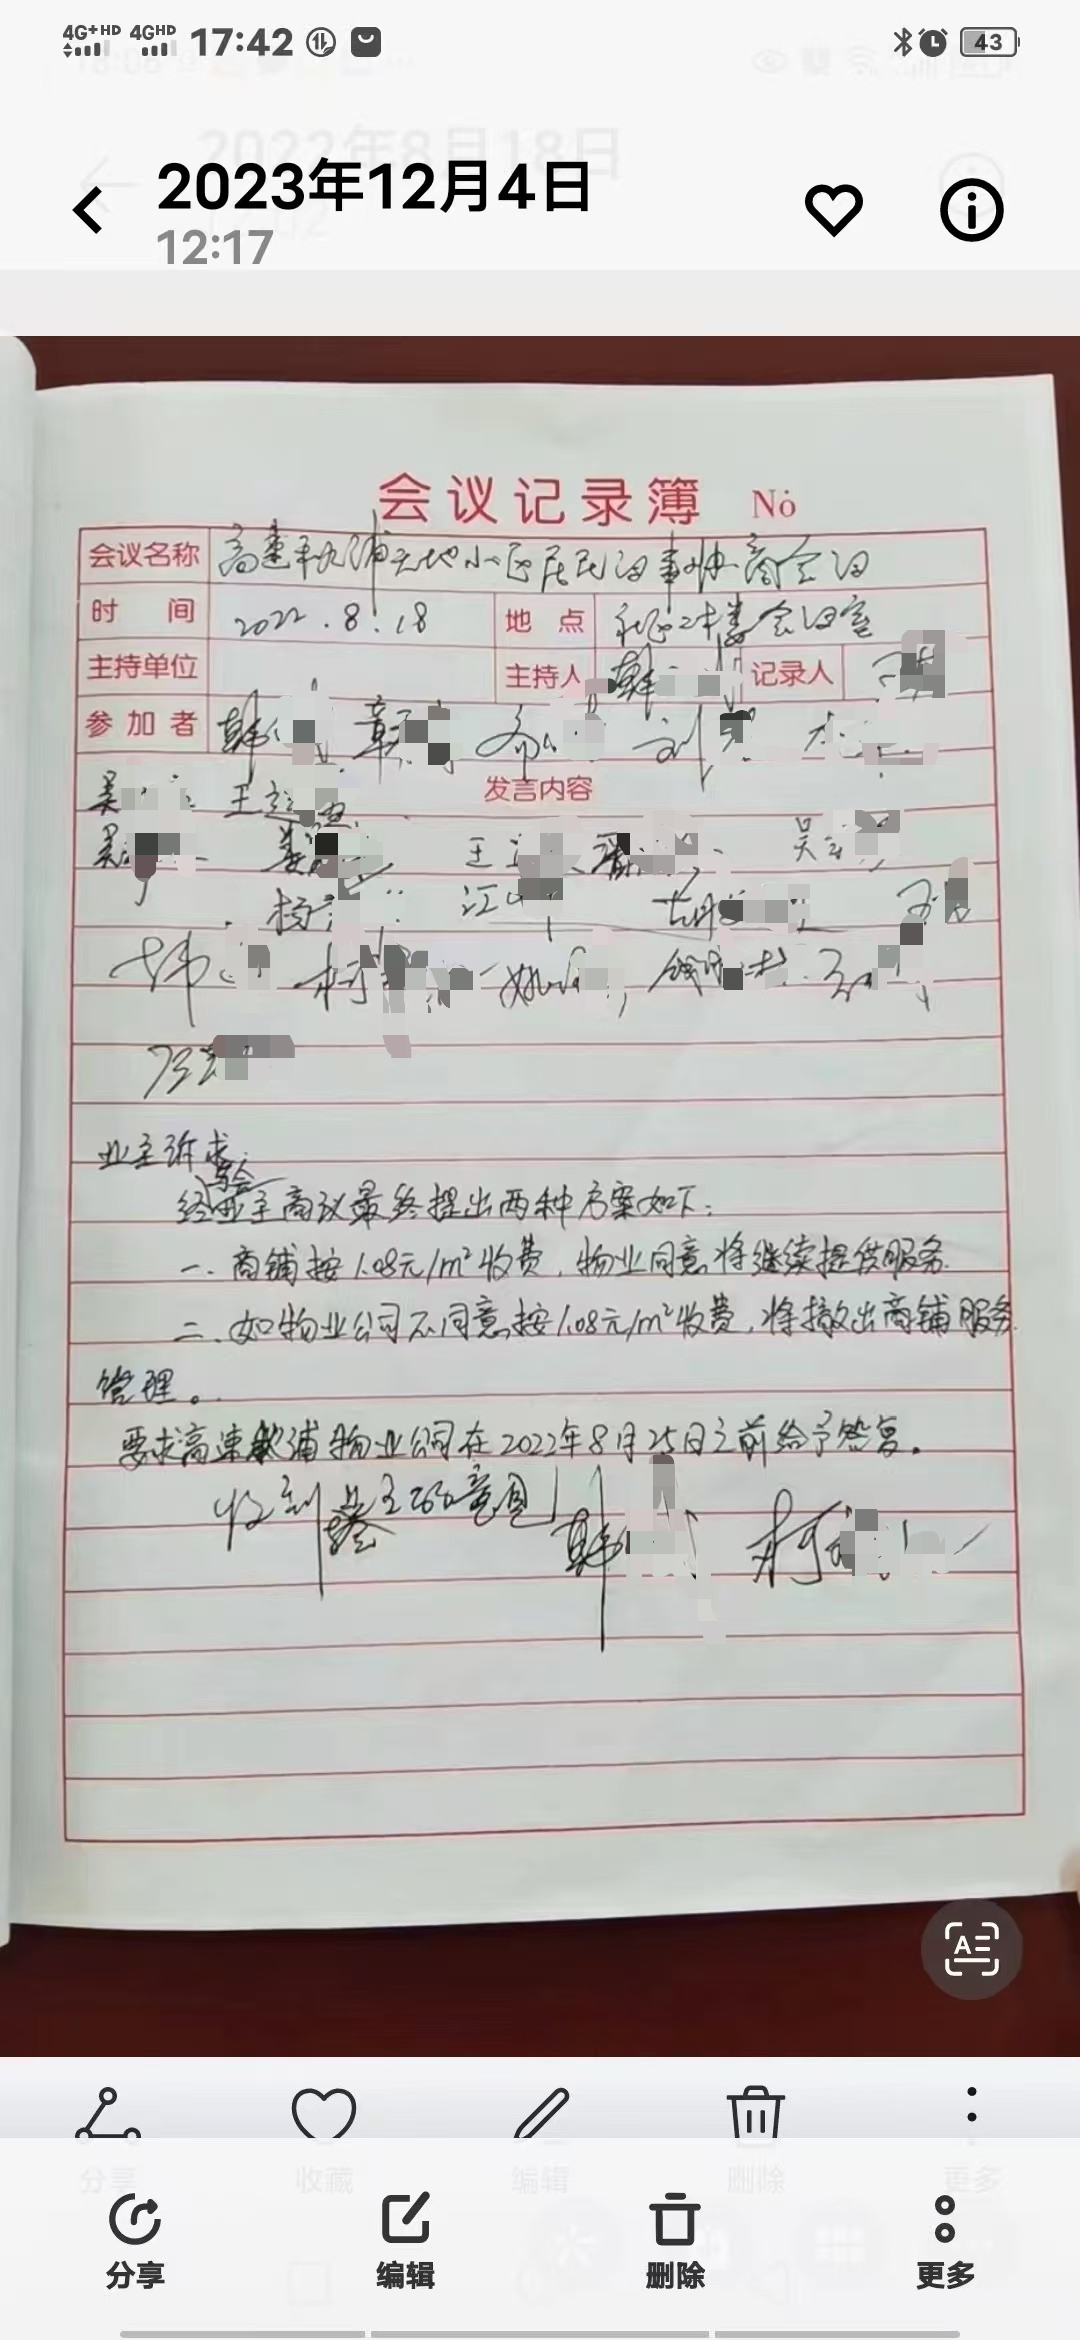 4G+HD 4GHD 17:42 43
2022年8月18日
2023年12月4日
12:17
会议记录簿 No
会议名称 高速秋浦天地小区居民议事协商会议
时 间 2022.8.18 地 点 社区二楼会议室
主持单位 主持人 韩 记录人
参加者 韩 章 刘
吴 王 发言内容
吴 姜 王 潘 吴
杨 江 胡
韩 柯 姚 钱
业主诉求:
经业主委会商议最终提出两种方案如下:
一. 商铺按1.08元/m²收费,物业同意将继续提供服务.
二. 如物业公司不同意按1.08元/m²收费,将撤出商铺服务
管理。
要求高速秋浦物业公司在2022年8月25日之前给予答复。
收到业主的意见 韩 柯
分享 收藏 编辑 删除 更多
分享 编辑 删除 更多